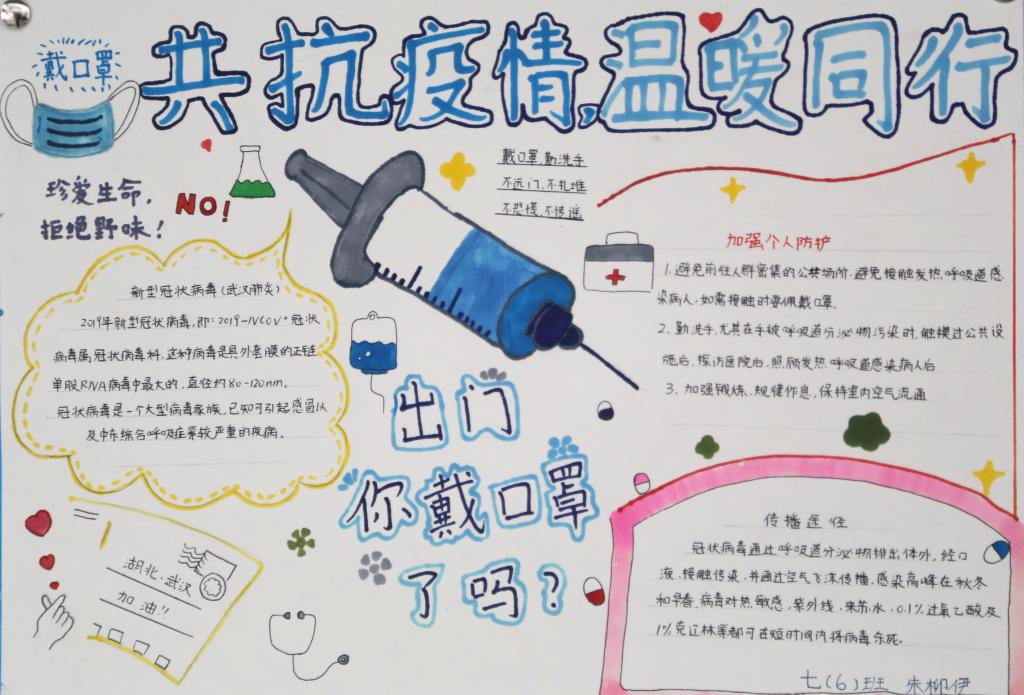 共抗疫情,温暖同行
戴口罩
戴口罩,勤洗手
不远门,不扎堆
不恐慌,不传谣
珍爱生命,
拒绝野味!
NO!
新型冠状病毒(武汉肺炎)
2019年新型冠状病毒,即:2019-NCOV"冠状
病毒属冠状病毒科,这种病毒是具外套膜的正链
单股RNA病毒中最大的,直径约80-120nm。
冠状病毒是一个大型病毒家族,已知可引起感冒以
及中东综合呼吸症等较严重的疾病。
加强个人防护
1.避免前往人群密集的公共场所,避免接触发热呼吸道感
染病人,如需接触时要佩戴口罩.
2.勤洗手,尤其在手被呼吸道分泌物污染时,触摸过公共设
施后,探访医院后,照顾发热呼吸道感染病人后
3、加强锻炼、规律作息、保持室内空气流通
出门
你戴口罩
了吗?
湖北·武汉
加油!!
传播途径
冠状病毒通过呼吸道分泌物排出体外,经口
液、接触传染,并通过空气飞沫传播,感染高峰在秋冬
和早春,病毒对热敏感,紫外线、来苏水、0.1%过氧乙酸及
1%克辽林等都可在短时间内将病毒杀死。
七(6)班 朱柳伊